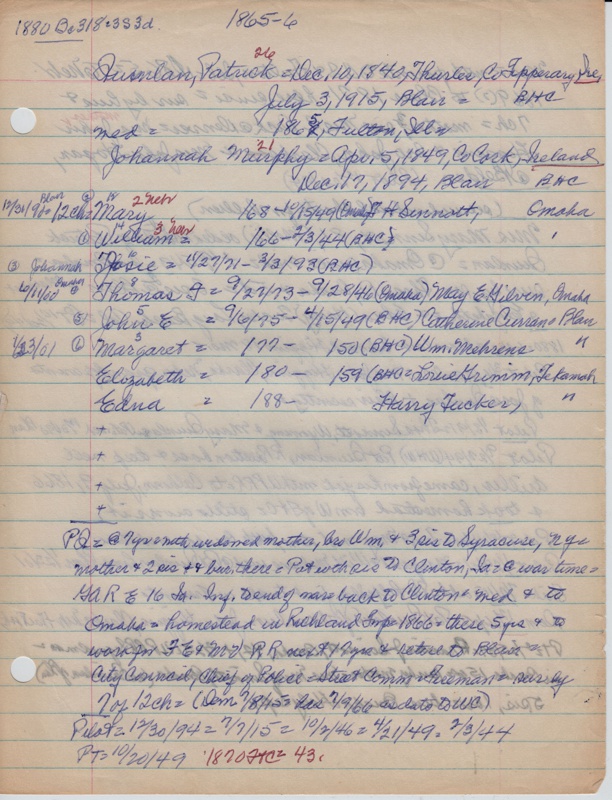 1880 Bo318=333d 1865-6
26
Quinlan, Patrick = Dec. 10, 1840, Thurles, Co Tipperary, Ire,
July 3, 1915, Blair = BHC
med = 1865, Fulton, Ills
21
Johannah Murphy = Apr. 5, 1849, Co Cork, Ireland
Dec. 17, 1894, Blair BHC
12/31/900 Blair 12ch = ② Mary 2 Nebr 168 - 1/15/49 (Omaha) T H Sennott, Omaha
① William = 3 Nebr 166 - 2/3/44 (BHC) "
③ Johannah Josie = 11/27/71 - 3/3/93 (BHC)
6/11/00 Omaha ④ Thomas F = 9/27/73 - 9/28/46 (Omaha) May E Gilven, Omaha
⑤ John E = 9/6/75 - 4/15/49 (BHC) Catherine Curran = Blair
1/23/01 ⑥ Margaret = 177 - 150 (BHC) Wm. Mehrens "
Elizabeth = 180 - 159 (BHC = Louie Grimm, Tekamah
Edna = 188 - Harry Tucker, "
+
+
+
+
PQ = @ 7yrs = with widowed mother, bro Wm, & 3 sis to Syracuse, N.Y. =
mother & 2 sis + & bur. there = Pat with sis to Clinton, Ia = @ war time =
GAR E 16 Ia. Inf. to end of war = back to Clinton = med & to
Omaha = homestead in Richland Twp = 1866 = there 5 yrs & to
work for F E & M V R R next 19 yrs & retire to Blair =
City Council, Chief of Police = Street Comm = Fireman = surv by
7 of 12ch = (Dem 7/8/15 = has 7/9/66 as date to WC)
Pilot = 12/30/94 = 7/7/15 = 10/2/46 = 4/21/49 = 2/3/44
PT = 10/20/49 1870 FtC = 43.